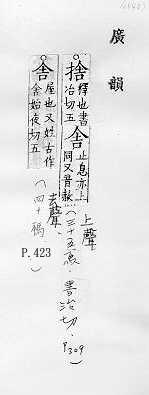 廣韻
捨 釋也書冶切五 舍 止息亦上同又音赦
上聲
(三十五馬)
書冶切.
P309)
舍 屋也又姓古作舍始夜切五
去聲、
(四十禡)
P.423